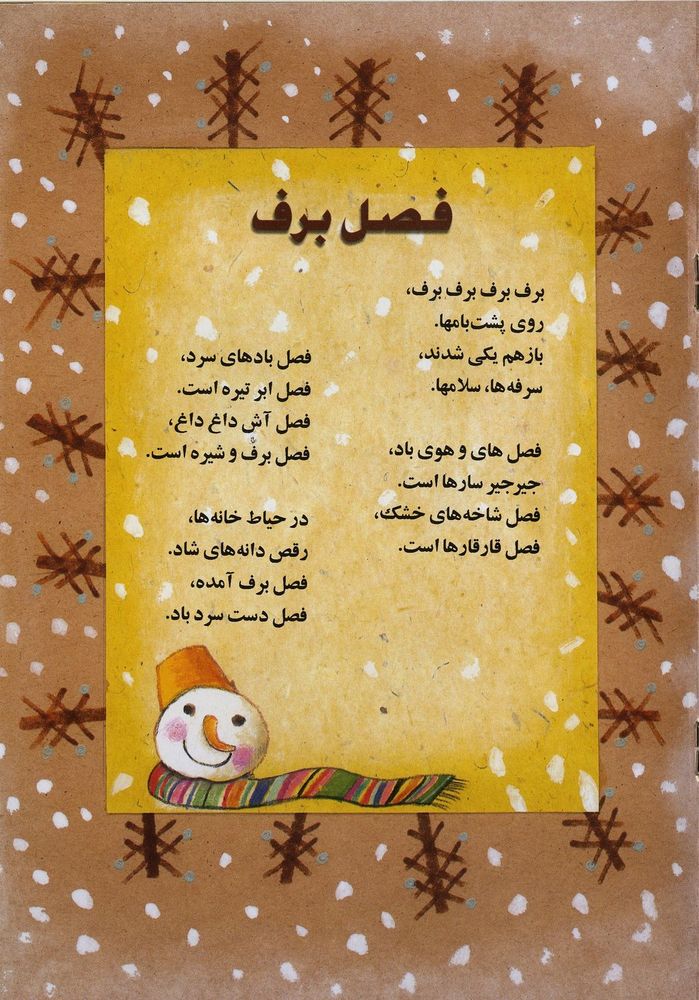 فصل برف
برف برف برف برف برف،
روی پشت‌بامها.
بازهم یکی شدند،
سرفه‌ها، سلامها.
فصل های و هوی باد،
جیرجیر سارها است.
فصل شاخه‌های خشک،
فصل قارقارها است.
فصل بادهای سرد،
فصل ابر تیره است.
فصل آش داغ داغ،
فصل برف و شیره است.
در حیاط خانه‌ها،
رقص دانه‌های شاد.
فصل برف آمده،
فصل دست سرد باد.